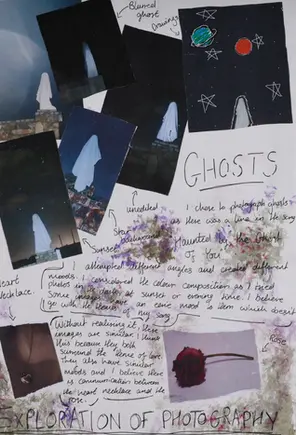 Blurred
ghost
Drawings
GHOSTS
unedited
I chose to photograph ghosts
as there was a line in the song
Star
Sunset
"Haunted by the Ghost
of You"
I attempted different angles and created different
moods. I considered the colour composition as I took
photos in
at sunset or evening time. I believe
go with the
my song
Heart
Necklace.
Without realising it, these
images are similar. I think
this because they both
surround the sense of love
They also have similar
moods and I believe there
is communication between
the heart necklace and the
rose.
Rose
EXPLORATION OF PHOTOGRAPHY